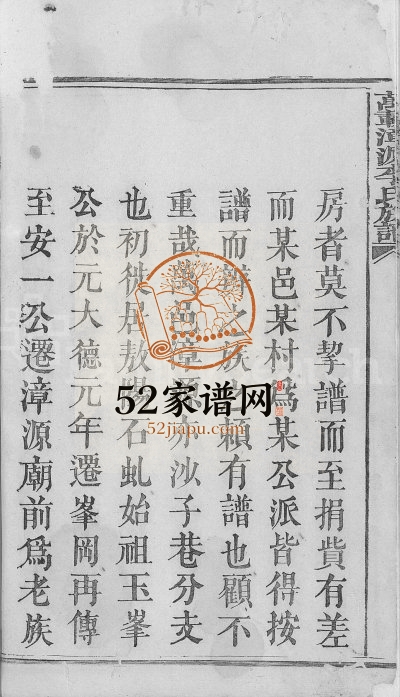 房者莫不挈譜而至捐貲有差
而某邑某村爲某公派皆得按
譜而之族賴有譜也顧不
重哉萬邑漳沙子巷分支
也初徙居敖陽石虬始祖玉峯
公於元大德元年遷峯岡再傳
至安一公遷漳源廟前爲老族
52家谱网
52jiapu.com